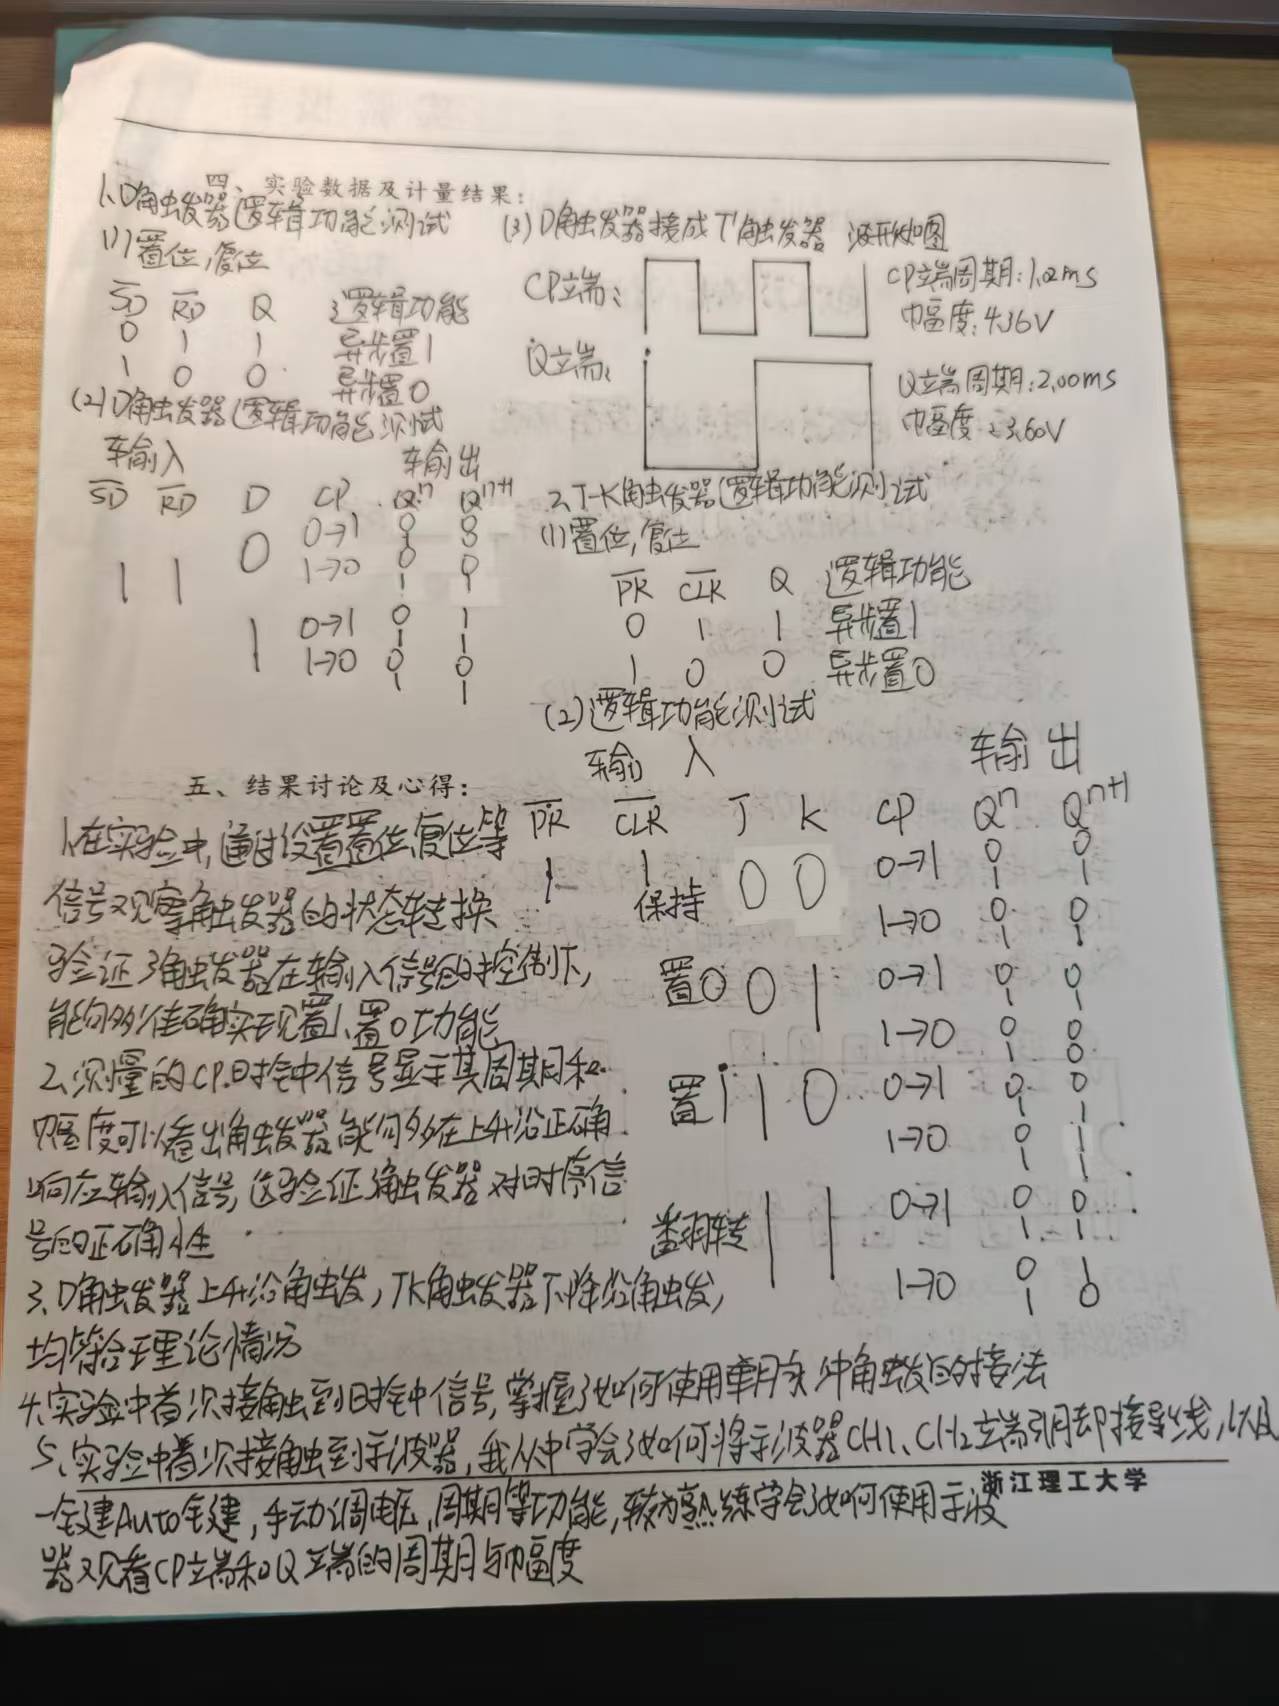 四、实验数据及计量结果:
1、D触发器逻辑功能测试
(1)置位,复位
SD RD Q 逻辑功能
0 1 1 异步置1
1 0 0 异步置0
(2)D触发器逻辑功能测试
输入 输出
SD RD D CP Qⁿ Qⁿ⁺¹
1 1 0 0→1 0 0
1→0 0 0
1 1
1 0→1 0 1
1 1
1→0 0 0
1 1
(3)D触发器接成T'触发器 波形如图
CP端:
CP端周期:1.02ms
幅度:4.36V
Q端:
Q端周期:2.00ms
幅度:3.60V
2、J-K触发器逻辑功能测试
(1)置位,复位
PR CLR Q 逻辑功能
0 1 1 异步置1
1 0 0 异步置0
(2)逻辑功能测试
输入 输出
PR CLR J K CP Qⁿ Qⁿ⁺¹
1 1 保持 0 0 0→1 0 0
1 1
1→0 0 0
1 1
置0 0 1 0→1 0 0
1 1
1→0 0 0
1 0
置1 1 0 0→1 0 0
1 1
1→0 0 1
1 1
翻转 1 1 0→1 0 0
1 1
1→0 0 1
1 0
五、结果讨论及心得:
1、在实验中,通过设置置位、复位等
信号观察触发器的状态转换
验证了触发器在输入信号的控制下,
能够准确实现置1、置0功能
2、测量的CP时钟信号显示其周期和
幅度可以看出触发器能够在上升沿正确
响应输入信号,这验证了触发器对时序信
号的正确性
3、D触发器上升沿触发,JK触发器下降沿触发,
均符合理论情况
4、实验中首次接触到时钟信号,掌握了如何使用单脉冲触发的接法
5、实验中首次接触到示波器,我从中学会了如何将示波器CH1、CH2端引脚接导线,以及
一键Auto键,手动调电压,周期等功能,较为熟练学会了如何使用示波
器观看CP端和Q端的周期与幅度
浙江理工大学